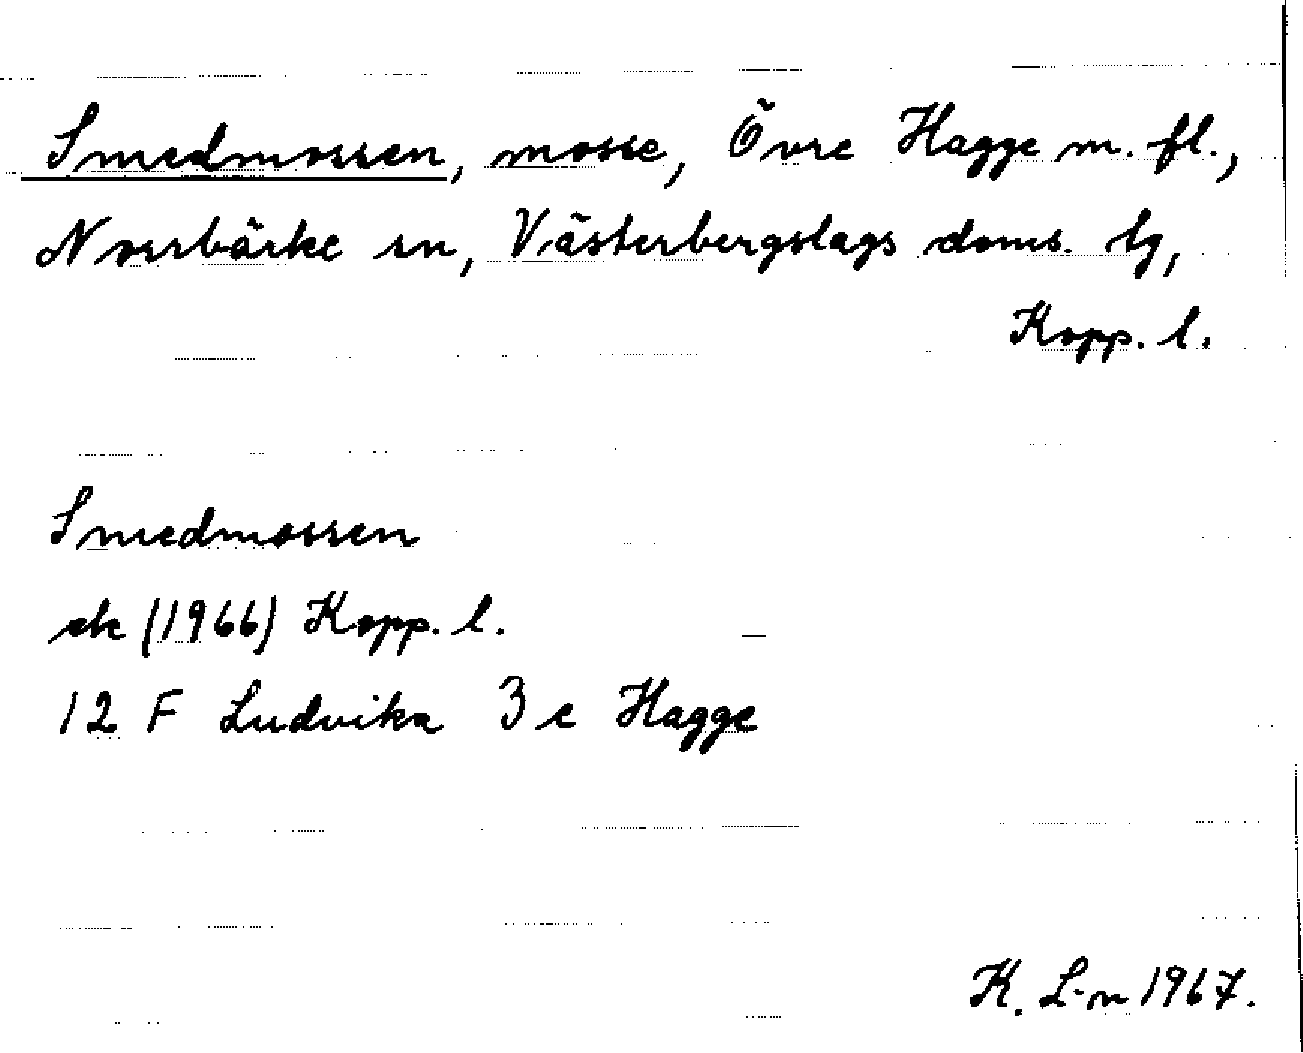 Smedmossen, mosse, Övre Hagge m. fl.,
Norrbärke sn, Västerbergslags doms. lg,
Kopp. l.
Smedmossen
ek (1966) Kopp. l.
12 F Ludvika 3 e Hagge
K. L-n 1967.